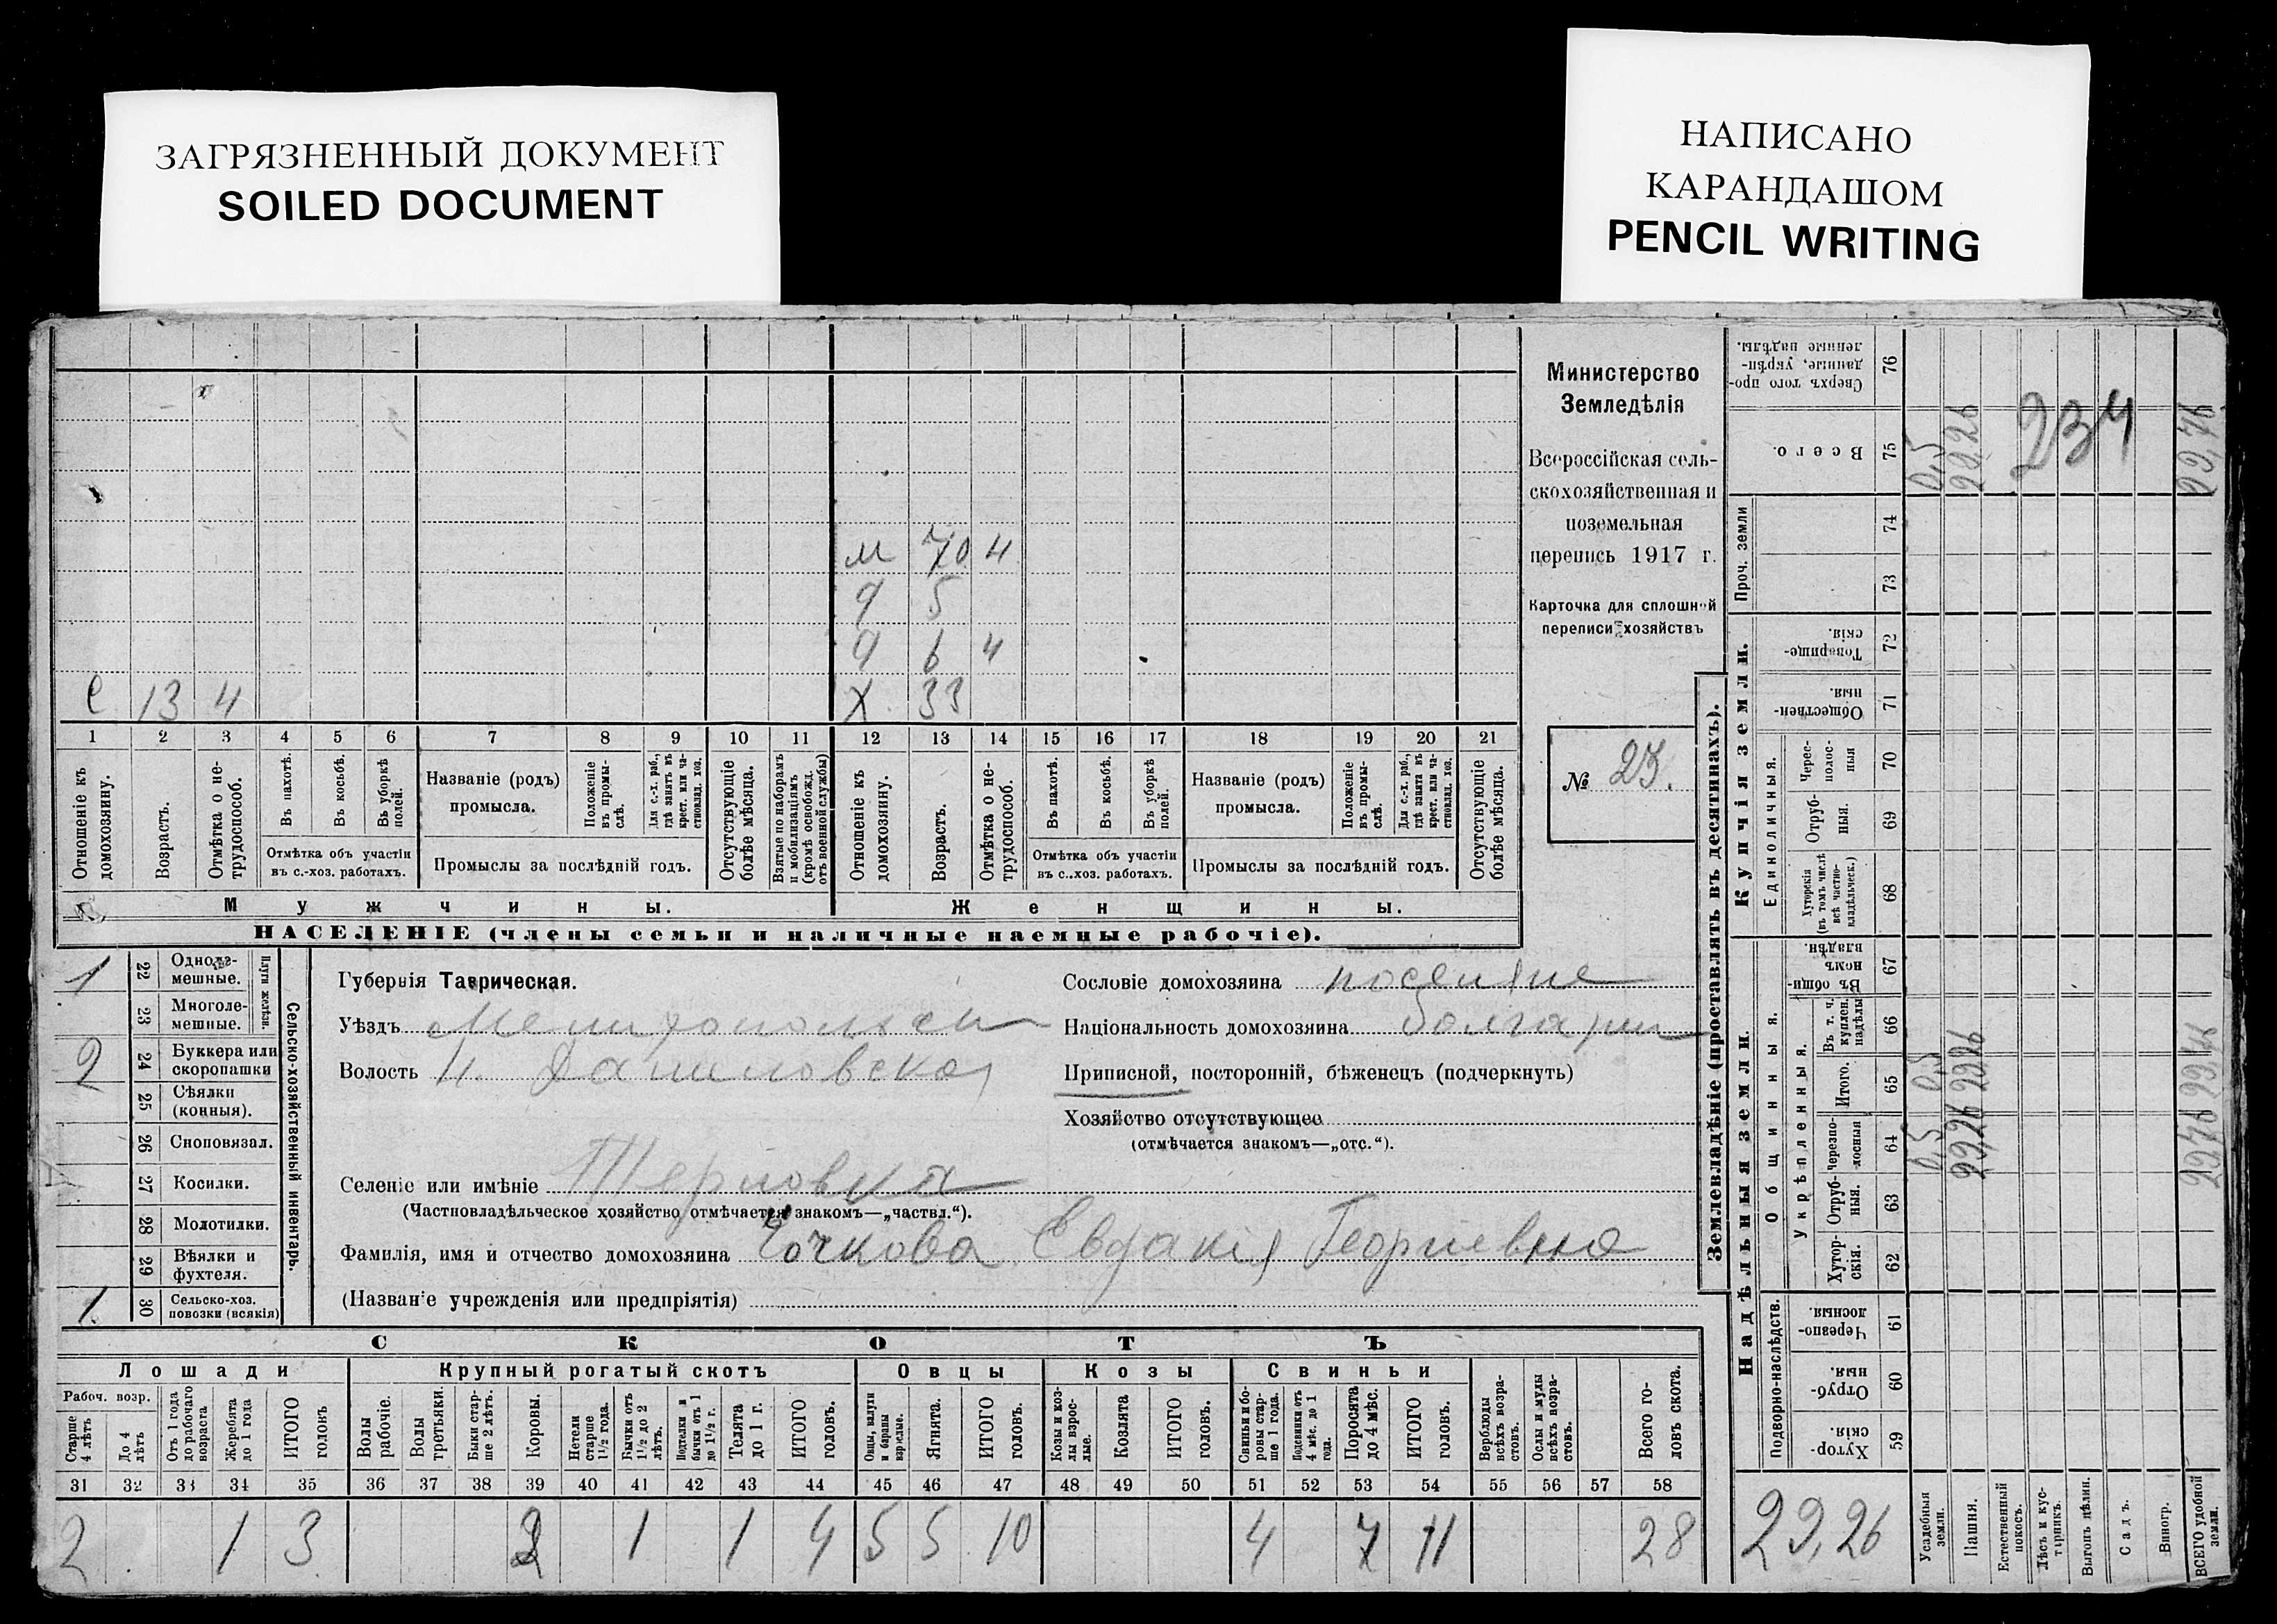 ЗАГРЯЗНЕННЫЙ ДОКУМЕНТ
SOILED DOCUMENT
НАПИСАНО
КАРАНДАШОМ
PENCIL WRITING
Министерство
Земледѣлія
Всероссійская сель-
скохозяйственная и
поземельная
перепись 1917 г.
Карточка для сплошной
переписи хозяйствъ
№ 23.
м 70 4
д 5
д 6 4
с 13 4 х 33
1 2 3 4 5 6 7 8 9 10 11 12 13 14 15 16 17 18 19 20 21
Отношеніе къ домохозяину.
Возрастъ.
Отмѣтка о не-трудоспособ.
Въ пахотѣ.
Въ косьбѣ.
Въ уборкѣ полей.
Отмѣтка объ участіи
въ с.-хоз. работахъ.
Названіе (родъ)
промысла.
Положеніе въ промы-слѣ.
Для с.-х. раб., гдѣ занятъ въ крест. или ча-стновлад. хоз.
Промыслы за послѣдній годъ.
Отсутствующіе болѣе мѣсяца.
Взятые по наборамъ и мобилизаціямъ (кромѣ освобожд. отъ военной службы)
Отношеніе къ домохозяину.
Возрастъ.
Отмѣтка о не-трудоспособ.
Въ пахотѣ.
Въ косьбѣ.
Въ уборкѣ полей.
Отмѣтка объ участіи
въ с.-хоз. работахъ.
Названіе (родъ)
промысла.
Положеніе въ промы-слѣ.
Для с.-х. раб., гдѣ занята въ крест. или ча-стновлад. хоз.
Промыслы за послѣдній годъ.
Отсутствующіе болѣе мѣсяца.
Мужчины. Женщины.
НАСЕЛЕНІЕ (члены семьи и наличные наемные рабочіе).
Сельско-хозяйственный инвентарь.
Плуги желѣзн.
1 22 Однолемешные.
23 Многоле-мешные.
2 24 Буккера или скоропашки
25 Сѣялки (конныя).
26 Сноповязал.
27 Косилки.
28 Молотилки.
29 Вѣялки и фухтеля.
1 30 Сельско-хоз. повозки (всякія)
Губернія Таврическая.
Уѣздъ Мелитопольскій
Волость Н. Даниловская
Селеніе или имѣніе Терновка
(Частновладѣльческое хозяйство отмѣчается знакомъ—„частвл.“).
Фамилія, имя и отчество домохозяина Чочкова Евдакія Георгиевна
(Названіе учрежденія или предпріятія)
Сословіе домохозяина поселяне
Національность домохозяина болгарин
Приписной, посторонній, бѣженецъ (подчеркнуть)
Хозяйство отсутствующее
(отмѣчается знакомъ—„отс.“).
СКОТЪ
Лошади Крупный рогатый скотъ Овцы Козы Свиньи
Рабоч. возр.
Старше 4 лѣтъ
До 4 лѣтъ
Отъ 1 года до рабочаго возраста
Жеребята до 1 года
ИТОГО головъ
Волы рабочіе.
Волы третьяки.
Быки стар-ше 2 лѣтъ.
Коровы.
Нетели старше 1½ года.
Бычки отъ 1½ до 2 лѣтъ.
Подтелки и бычки отъ 1 до 1½ г.
Телята до 1 г.
ИТОГО головъ.
Овцы, валухи и бараны взрослые.
Ягнята.
ИТОГО головъ.
Козы и коз-лы взрос-лые.
Козлята
ИТОГО головъ.
Свиньи и бо-ровы стар-ше 1 года.
Подсвинки отъ 4 мѣс. до 1 года.
Поросята до 4 мѣс.
ИТОГО головъ.
Верблюды всѣхъ возра-стовъ.
Ослы и мулы всѣхъ возра-стовъ.
Всего го-ловъ скота.
31 32 33 34 35 36 37 38 39 40 41 42 43 44 45 46 47 48 49 50 51 52 53 54 55 56 57 58
2 1 3 2 1 1 4 5 5 10 4 7 11 28
Землевладѣніе (проставлять въ десятинахъ).
Надѣльныя земли.
Купчія земли.
Проч. земли
Подворно-наслѣдств.
Общинныя.
Укрѣпленныя.
Единоличныя.
Хутор-скія. 59
Отруб-ныя. 60
Черезпо-лосныя. 61
Хутор-скія. 62
Отруб-ныя. 63
Черезпо-лосныя 64
Итого. 65
Въ т. ч. куплен. надѣлы 66
Въ общин-номъ владѣн. 67
Хуторскія (въ томъ числѣ всѣ частно-владѣльческ.) 68
Отруб-ныя. 69
Черес-полос-ныя 70
Обществен-ныя. 71
Товарище-скія. 72
73
74
Всего. 75
Сверхъ того про-данные, укрѣп-ленные надѣлы. 76
Усадебныя земли.
Пашня.
Естественный покосъ.
Лѣсъ и кус-тарникъ.
Выгонъ цѣлин.
Садъ.
Виногр.
ВСЕГО удобной земли.
29,26
0,5 0,5 0,5
22,26 22,26 22,26
22,76 22,76 22,76
234